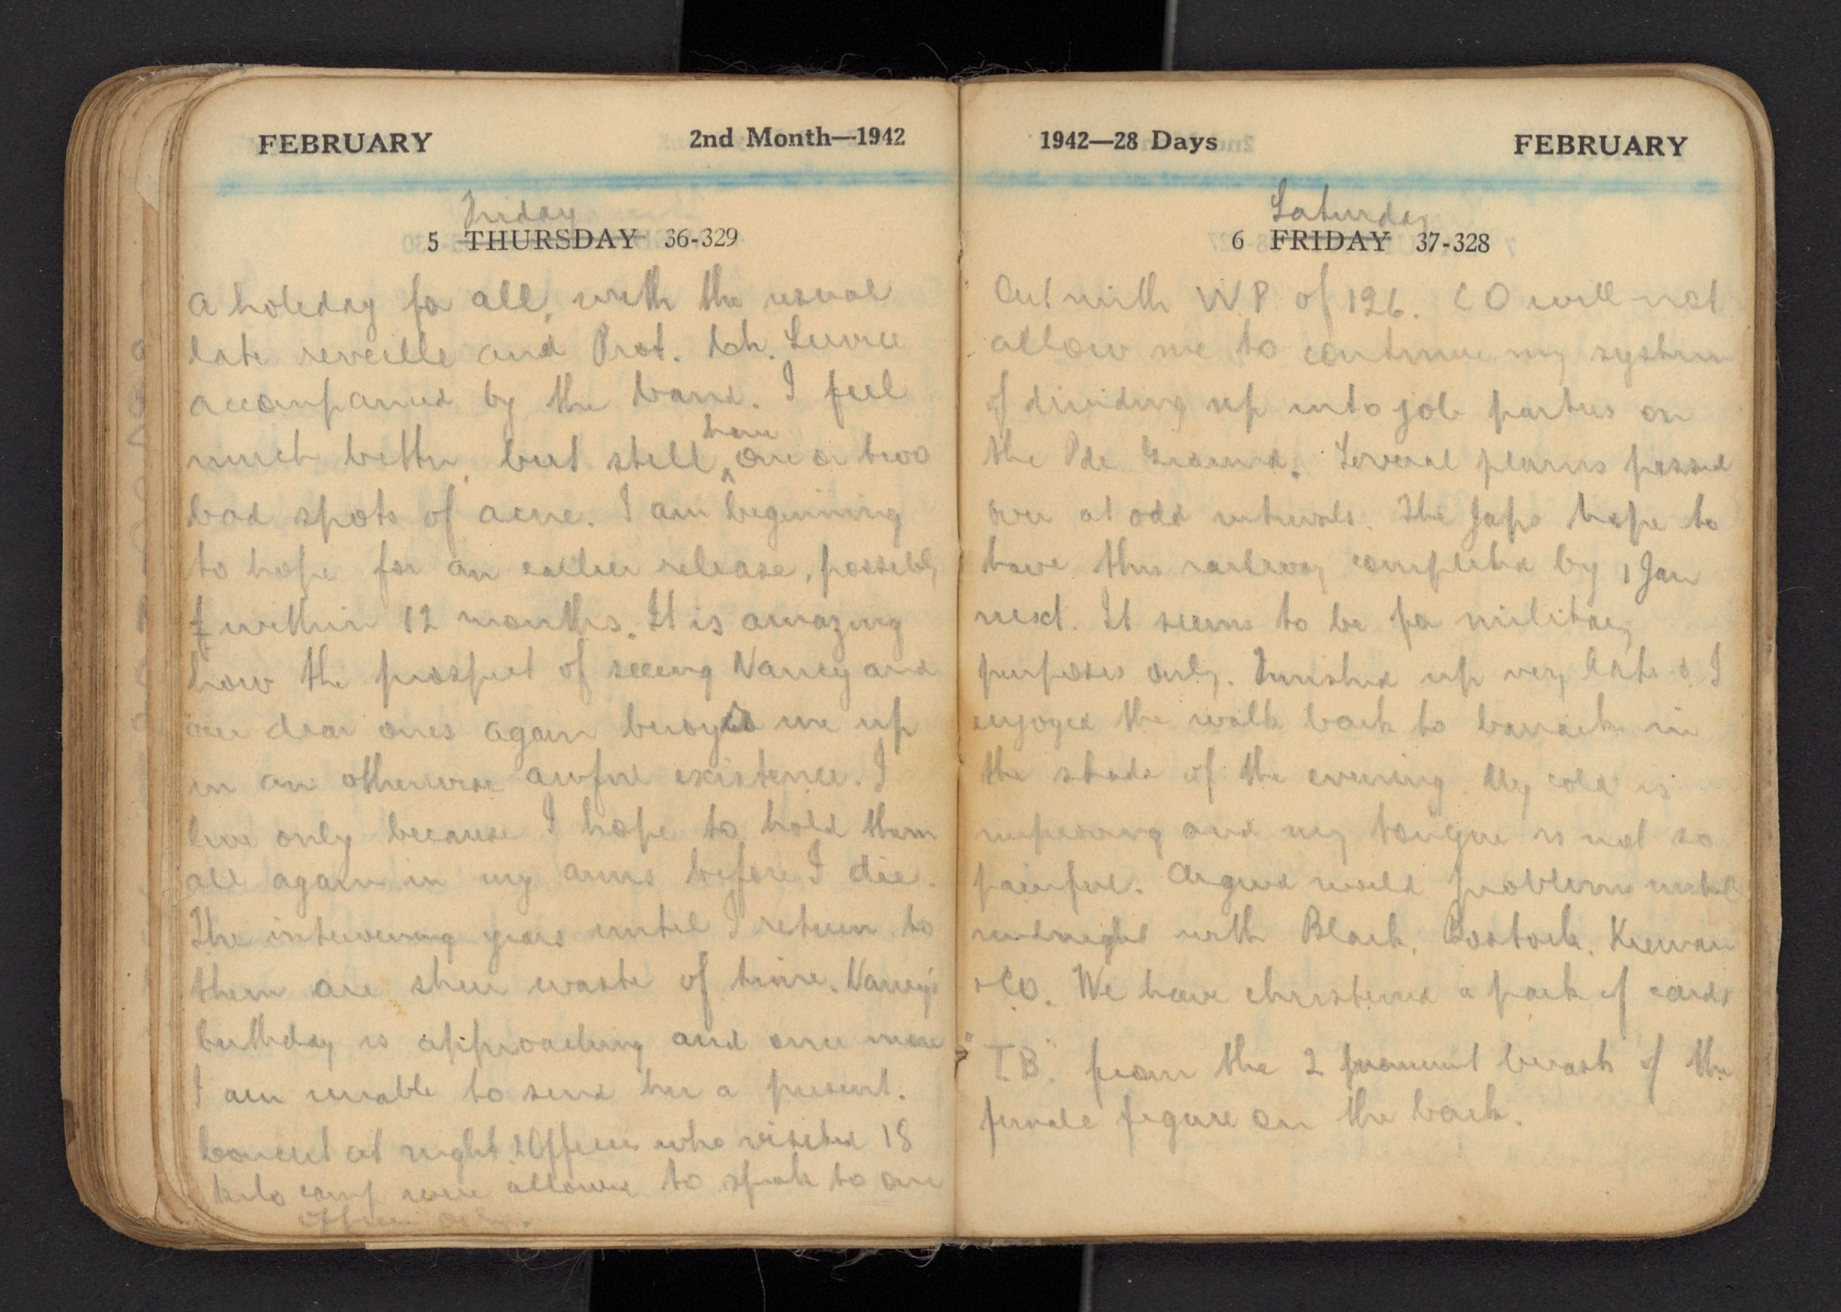 FEBRUARY 2nd Month—1942
Friday
5 THURSDAY 36-329
A holiday for all, with the usual
late reveille and Prot. Ch. Service
accompanied by the band. I feel
have
much better, but still ^ one or two
bad spots of acne. I am beginning
to hope for an earlier release, possibly
within 12 months. It is amazing
how the prospect of seeing Nancy and
our dear ones again buoys me up
in an otherwise awful existence. I
live only because I hope to hold them
all again in my arms before I die.
The intervening years until I return to
them are sheer waste of time. Nancy's
birthday is approaching and once more
I am unable to send her a present.
Concert at night. 2 Officers who visited 18
kilo camp were allowed to speak to one
officer only.
1942—28 Days FEBRUARY
Saturday
6 FRIDAY 37-328
Out with W.P. of 126. CO will not
allow me to continue my system
of dividing up into job parties on
the Pde Ground. Several planes passed
over at odd intervals. The Japs hope to
have this railway completed by 1 Jan
next. It seems to be for military
purposes only. Finished up very late & I
enjoyed the walk back to barrack in
the shade of the evening. My cold is
improving and my tongue is not so
painful. Argued world problems until
midnight with Black, Bostock, Kiernan
& Co. We have christened a pack of cards
"T.B." from the 2 prominent breasts of the
female figure on the back.